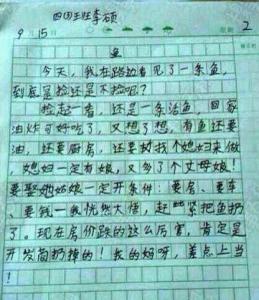 四四王班李硕
9月15日 2
鱼
今天，我在路边看见了一条鱼，
到底是捡还是不捡呢？
捡起看，还是一条活鱼，回家
油炸可好吃了，又想了想，有鱼还要
油，还要厨房，还要找个媳妇来做
，媳妇一定有娘，又多了个丈母娘！
要娶她姑娘一定开条件：要房、要车
、要钱一我恍然大悟，赶紧把鱼扔
了。现在房价跌的这么厉害，肯定是
开发商扔掉的！我的妈呀，差点上当
！